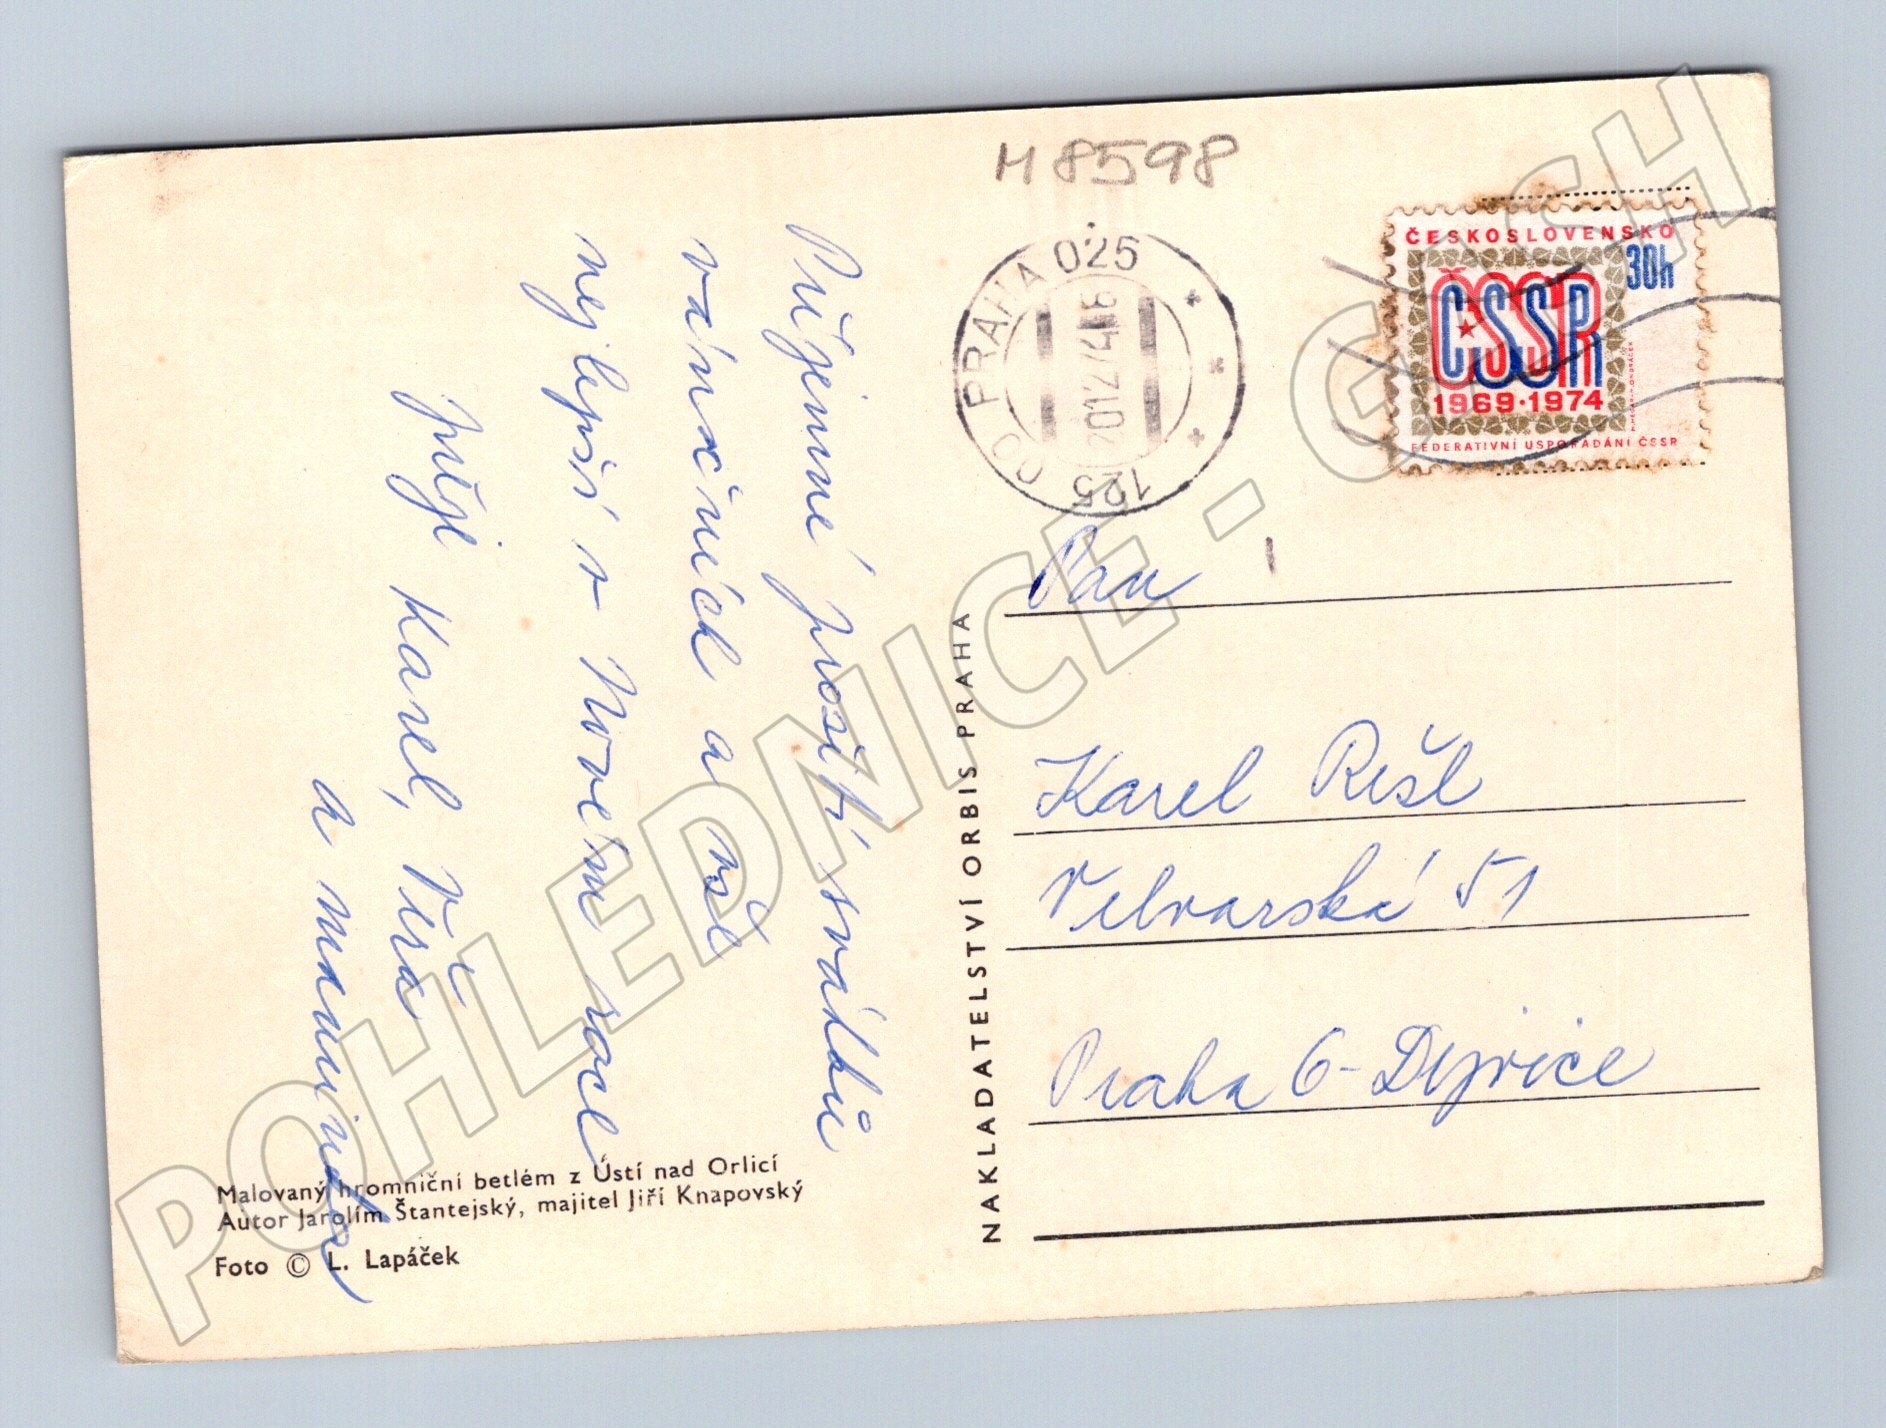 M 8598
ČESKOSLOVENSKO
30h
ČSSR
1969·1974
FEDERATIVNÍ USPOŘÁDÁNÍ ČSSR
025 PRAHA 025
20.12.74-16
125
Příjemné prožití svátků
vánočních a vše
nejlepší v Novém roce
přejí Karel, Věra
a maminka
Pan
Karel Rešl
Velvarská 51
Praha 6 - Dejvice
NAKLADATELSTVÍ ORBIS PRAHA
Malovaný hromniční betlém z Ústí nad Orlicí
Autor Jarolím Štantejský, majitel Jiří Knapovský
Foto © L. Lapáček
POHLEDNICE - CZECH